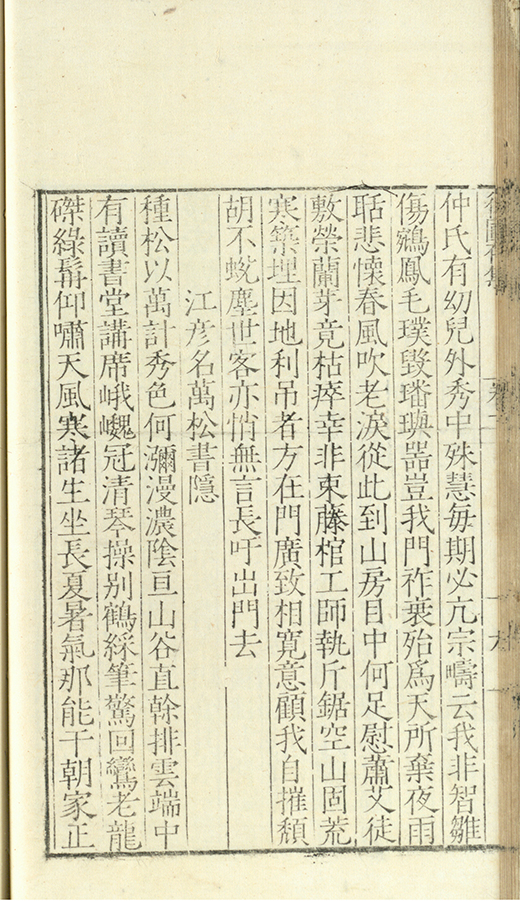 仲氏有幼兒外秀中殊慧每期必亢宗疇云我非智雛
傷鵷鳳毛璞毀璠璵器豈我門祚衰殆爲天所棄夜雨
聒悲懷春風吹老淚從此到山房目中何足慰蕭艾徒
敷榮蘭芽竟枯瘁幸非束藤棺工師執斤鋸空山固荒
寒築埋因地利吊者方在門廣致相寬意顧我自摧頹
胡不蛻塵世客亦悄無言長吁出門去
江彥名萬松書隱
種松以萬計秀色何瀰漫濃陰亘山谷直榦排雲端中
有讀書堂講席峨巍冠清琴操別鶴綵筆驚回鸞老龍
磔綠髯仰嘯天風寒諸生坐長夏暑氣那能干朝家正